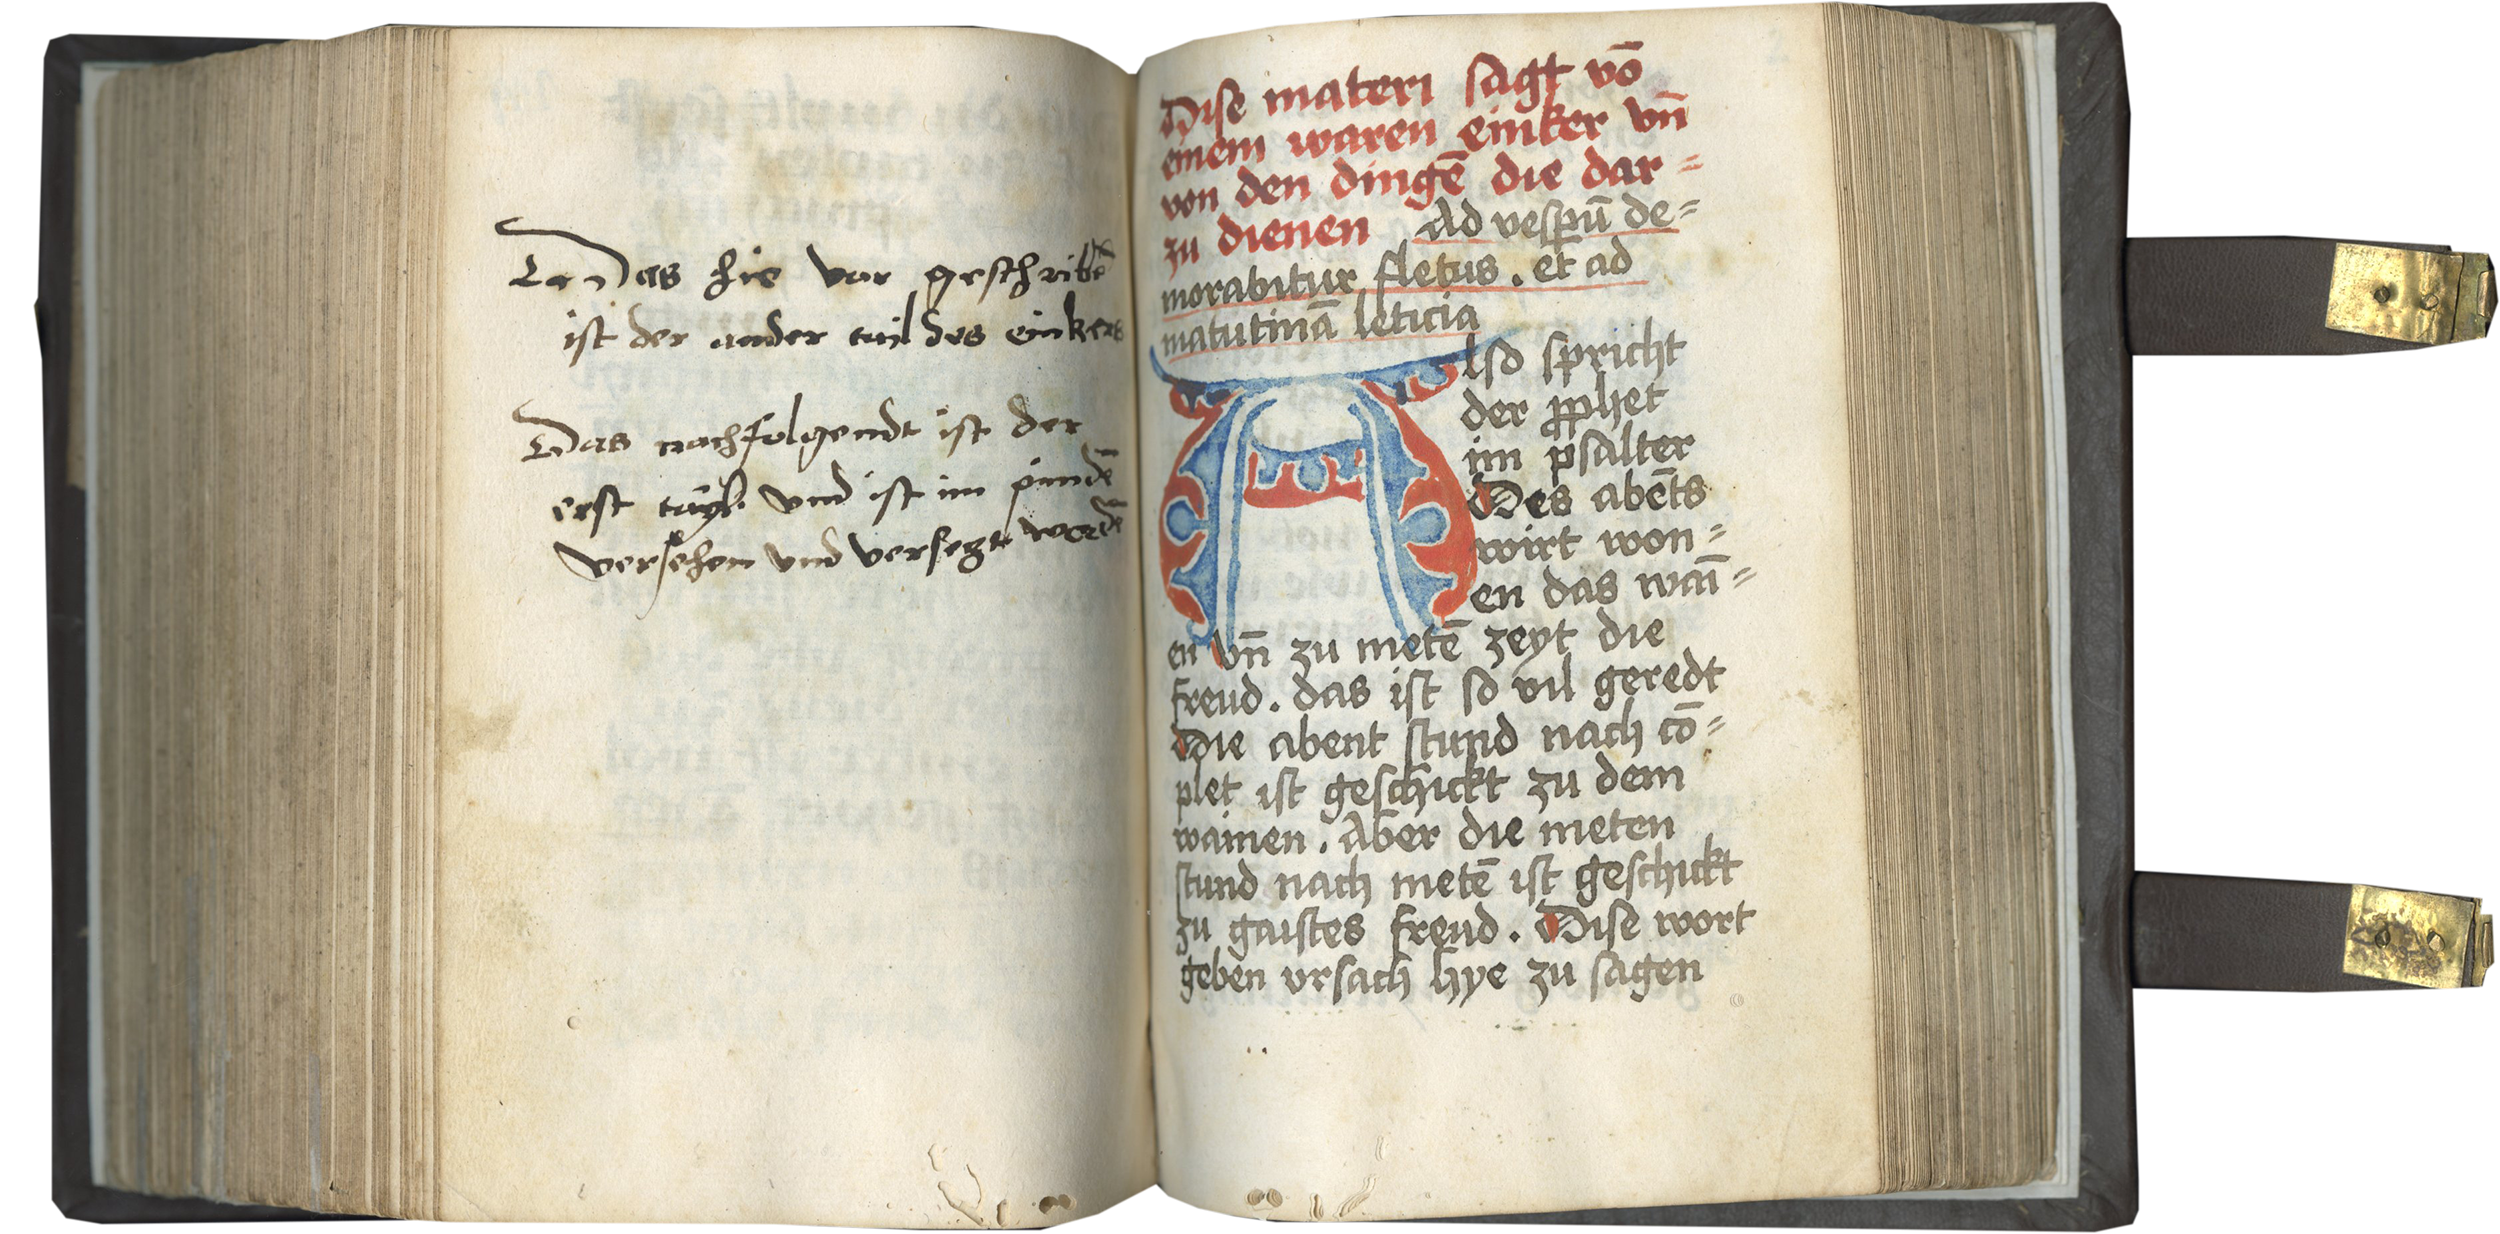 Das hie vor geschribē
ist der ander tail des einkers
Das nachfolgendt ist der
erst tayl. vnd ist im pindē
versehen vnd versezt wordē
Dise materi sagt vō
einem waren einker vn̄
von den dingē die dar⸗
zu dienen Ad vespū de⸗
morabitur fletus. et ad
matutinā leticia
Also spricht
der ꝓphet
im psalter
Des abēts
wirt won⸗
en das wai̅⸗
en vn̄ zu metē zeyt die
freud. das ist so vil geredt
Die abent stund nach cō⸗
plet ist geschickt zu dem
wainen. Aber die meten
stund nach metē ist geschickt
zu gaistes freud. Dise wort
geben vrsach hye zu sagen